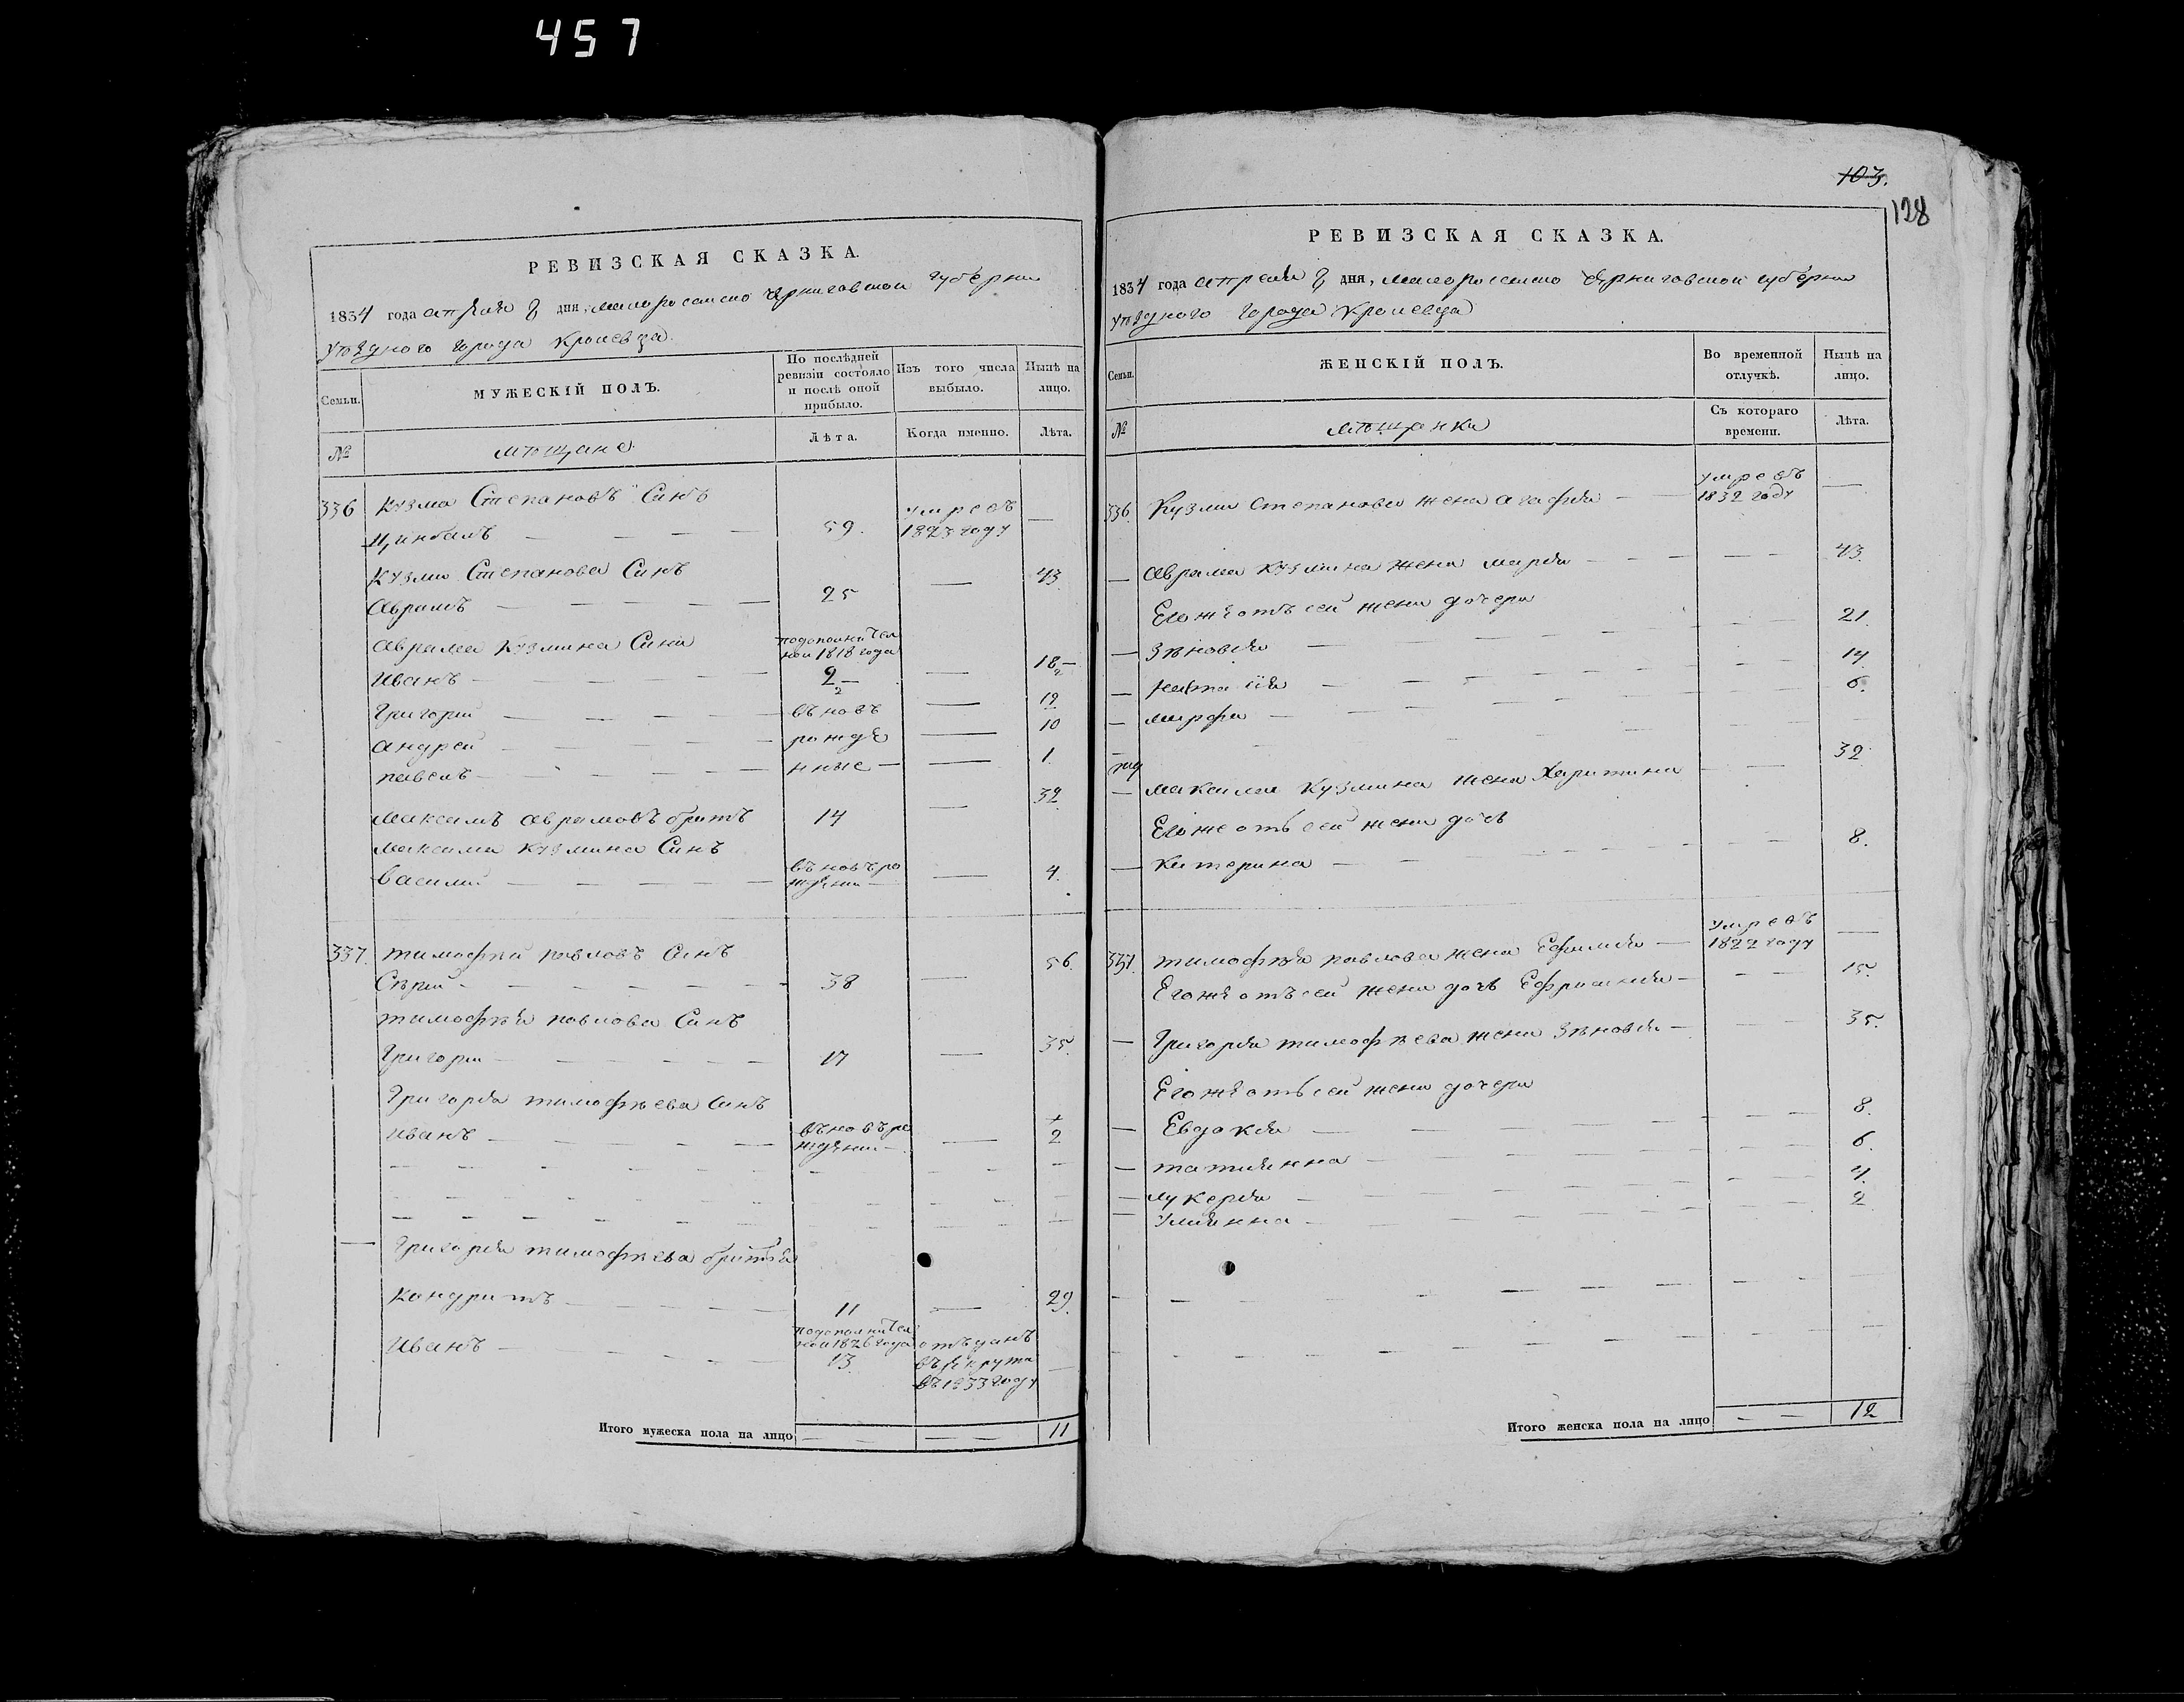 457
РЕВИЗСКАЯ СКАЗКА.
1834 года апреля дня, малоросийско Черниговской губерни
уѣздного города Кролевца
Семьи.
МУЖЕСКІЙ ПОЛЪ.
По послѣдней ревизіи состояло и послѣ оной прибыло.
Изъ того числа выбыло.
Нынѣ на лицо.
№
мѣщане
Лѣта.
Когда именно.
Лѣта.
336 Кузма Степановъ Синъ
Цинбалъ 59. умревъ 1823 году
Кузми Степанова Синъ
Аврамъ 25 43
Аврама Кузмина Сини
Иванъ подополнител ной 1818 года 2 18
Григорий вновъ 12
Андрей рожде 10
Павелъ нные 1
Максимъ Аврамовъ братъ 14 32
Максима Кузмина Синъ
Василий вновъ ро жденни 4
337. Тимофѣй Павловъ Синъ
Сѣрий 38 56.
Тимофѣя Павлова Синъ
Григори 17 35.
Григорія Тимофѣева Синъ
Иванъ вновъ ро жденни 2
Григорія Тимофѣева братія
Кондратъ 11 29.
Иванъ подополнител ной 1826 года 13 отъданъ въ рекрути въ 1833 году
Итого мужеска пола на лицо 11
103.
128
РЕВИЗСКАЯ СКАЗКА.
1834 года апреля дня, малоросийско Черниговской губерни
уѣздного города Кролевца
Семьи.
ЖЕНСКІЙ ПОЛЪ.
Во временной отлучкѣ.
Нынѣ на лицо.
№
мѣщанки
Съ котораго времени.
Лѣта.
336. Кузми Степанова жена Агафія умревъ 1832 году
Аврама Кузмина жена Марія 43.
Егоже отъ сей жени дочери
Зѣновія 21.
Наталія 14
Марфа 6.
Максима Кузмина жена Харитина 32.
Егоже отъ сей жени дочъ
Катерина 8.
337. Тимофѣя Павлова жена Ефимія умревъ 1822 году
Егоже отъ сей жени дочъ Ефросинія 15.
Григорія Тимофѣева жена Зѣновія 35.
Егоже отъ сей жени дочери
Евдокія 8.
Татиянна 6.
Лукерія 4.
Улиянна 2
Итого женска пола на лицо 12